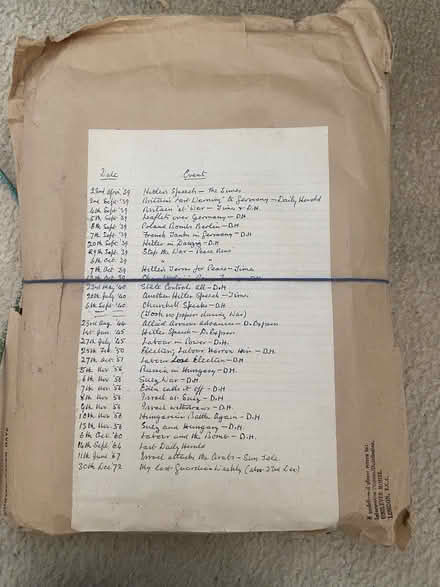 Date Event
22nd April '39 Hitler's Speech – The Times
2nd Sept '39 Britain's Last Warning to Germany – Daily Herald
4th Sept '39 Britain at War – Times & D.H.
5th Sept '39 Leaflets over Germany – D.H
6th Sept '39 Poland Bombs Berlin – D.H
7th Sept '39 French Tanks in Germany – D.H
20th Sept '39 Hitler in Danzig – D.H.
29th Sept '39 Stop the War –
6th Oct '39 " "
7th Oct '39 Hitler's Terms for Peace – Times
'39
23rd May '40 State Controls All – D.H
20th July '40 Another Hitler Speech – Times
6th Sept '40 Churchill Speaks – D.H
(Took no papers during War)
23rd Aug '44 Allied Armour Advances – D. Express
1st Jan '45 Hitler Speech – D. Express
27th July '45 Labour in Power – D.H.
25th Feb '50 Election, Labour Narrow Win – D.H.
27th Oct '51 Labour Lose Election – D.H
5th Nov '56 Russia in Hungary – D.H.
6th Nov '56 Suez War – D.H
7th Nov '56 Eden calls it off – D.H
8th Nov '56 Israel at Suez – D.H
9th Nov '56 Israel withdraws – D.H
10th Nov '56 Hungarian Battle Again – D.H
13th Nov '56 Suez and Hungary – D.H
6th Oct '60 Labour and the Bomb – D.H.
14th Sept '64 Last Daily Herald
11th June '67 Israel attacks the Arabs – Sun. Tele.
30th Dec '72 My last Guardian Weekly (also 23rd Dec)
If undelivered please return to:
LONDON, E.C.1.